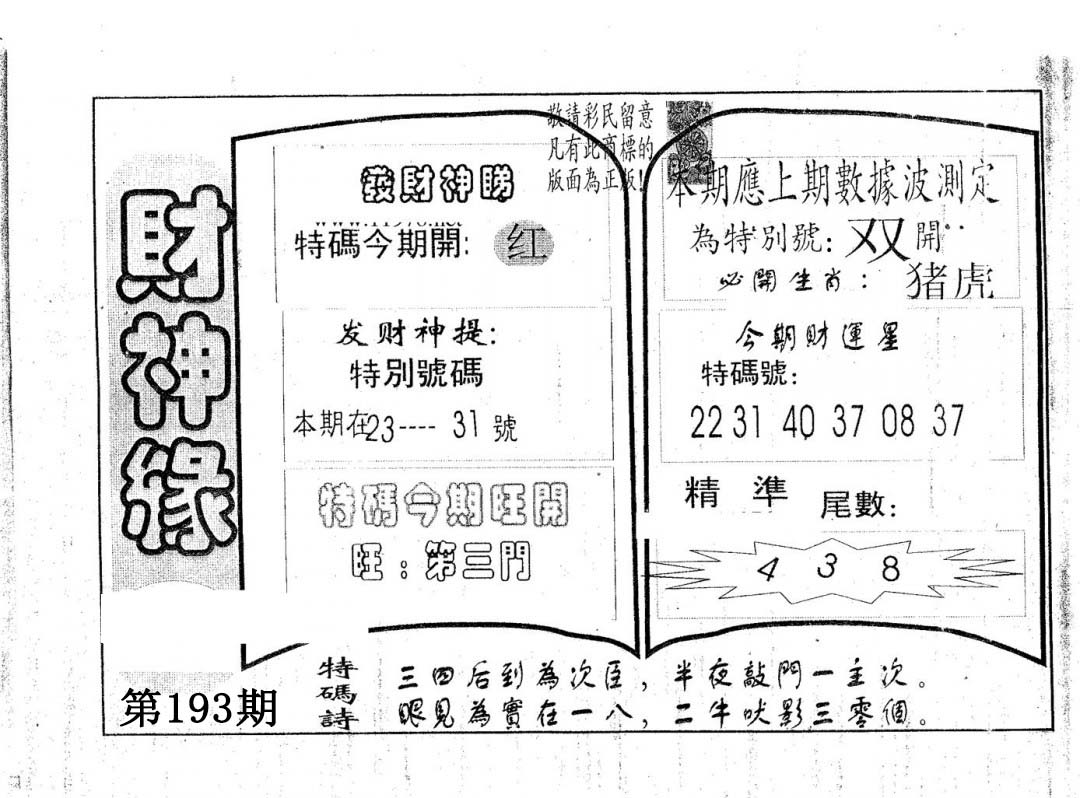 財神緣
第193期
敬請彩民留意
凡有此商標的
版面為正版!
發財神睇
特碼今期開: 红
发财神提:
特別號碼
本期在23----31號
特碼今期旺開
旺:第三門
本期應上期數據波測定
為特別號:双開
必開生肖:猪虎
今期財運星
特碼號:
22 31 40 37 08 37
精準 尾數:
4 3 8
特碼詩
三四后到為次臣,半夜敲門一主次。
眼見為實在一八,二牛吠影三零個。